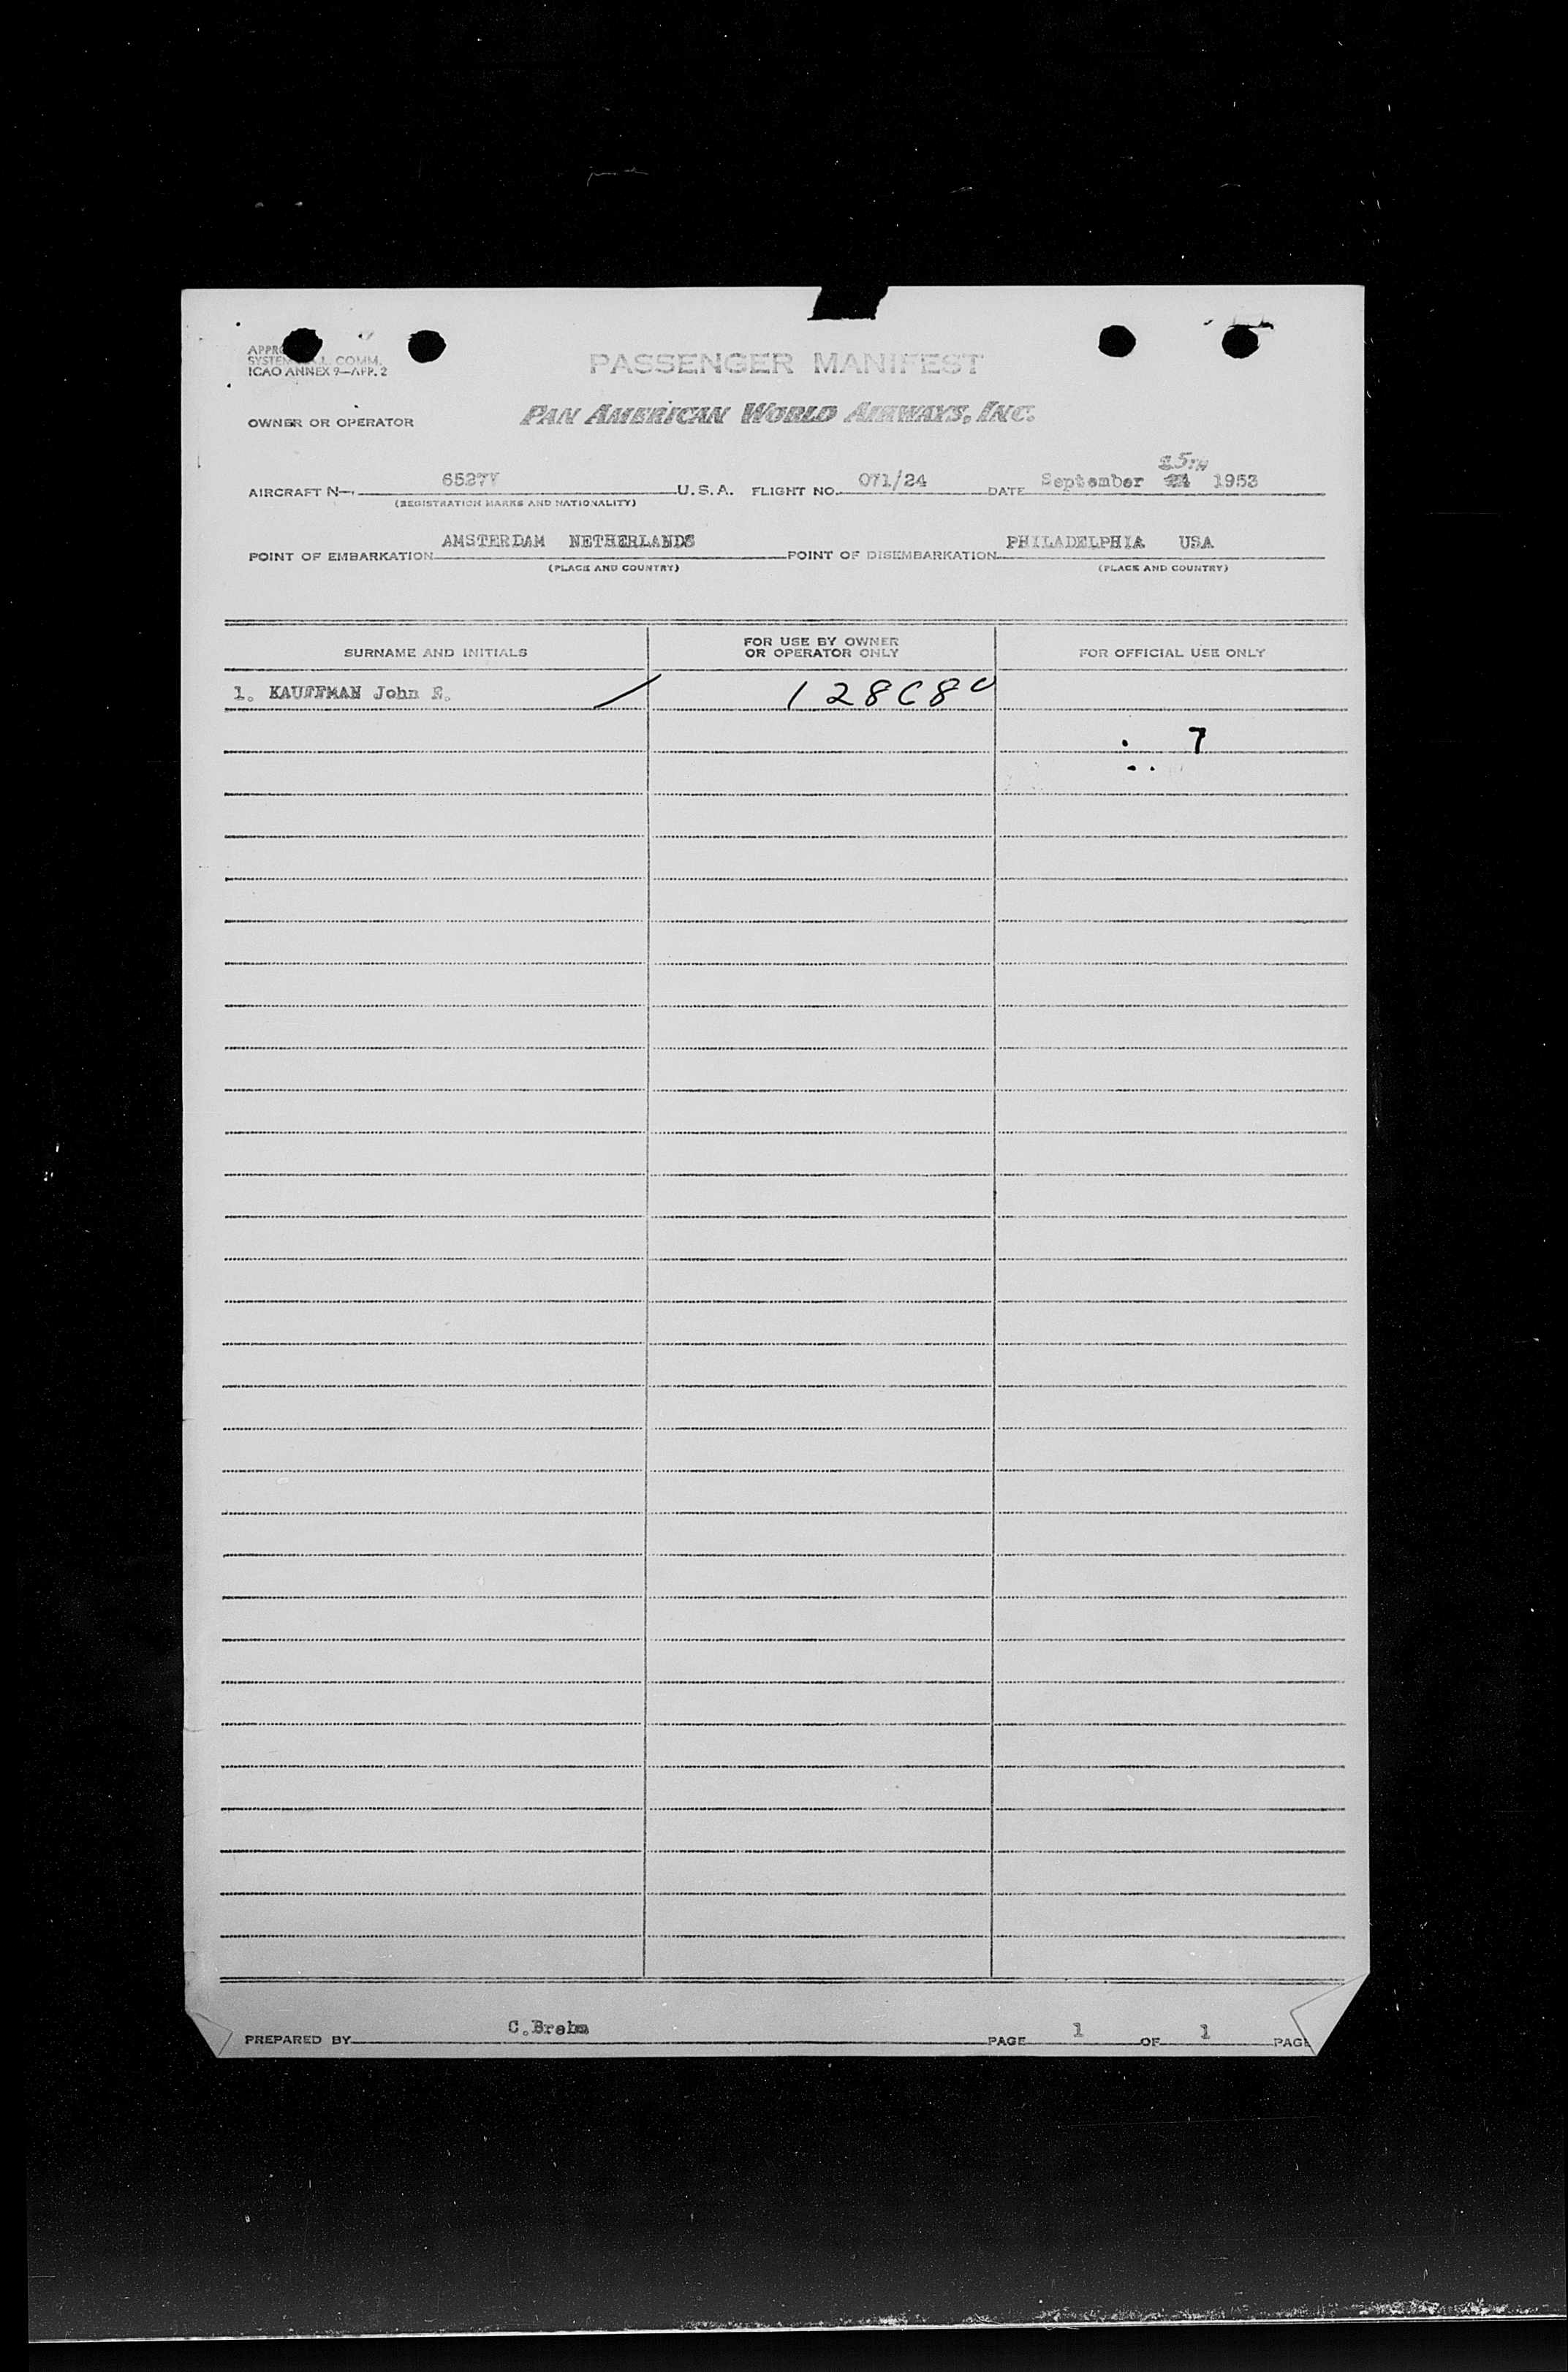 SYSTEM COMM.
ICAO ANNEX 9—APP. 2
PASSENGER MANIFEST
OWNER OR OPERATOR PAN AMERICAN WORLD AIRWAYS, INC.
25TH
AIRCRAFT N— 6527V U.S.A. FLIGHT NO. 071/24 DATE September 24 1953
(REGISTRATION MARKS AND NATIONALITY)
POINT OF EMBARKATION AMSTERDAM NETHERLANDS POINT OF DISEMBARKATION PHILADELPHIA USA
(PLACE AND COUNTRY) (PLACE AND COUNTRY)
SURNAME AND INITIALS
FOR USE BY OWNER
OR OPERATOR ONLY
FOR OFFICIAL USE ONLY
1. KAUFFMAN John
7
PREPARED BY C.Brehm PAGE 1 OF 1